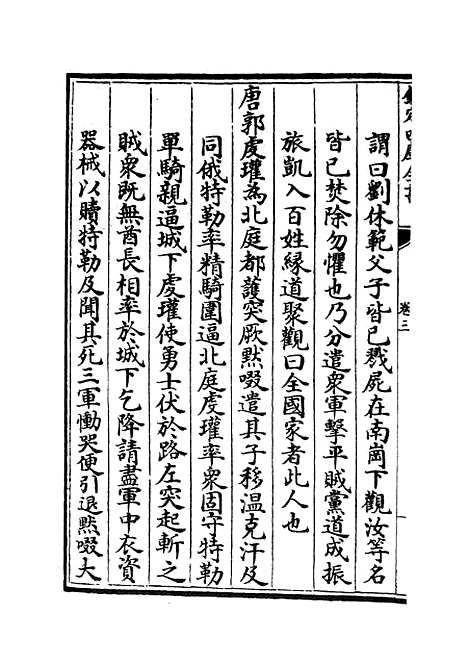 欽定四庫全書
卷三
謂曰劉休範父子皆已戮屍在南崗下觀汝等名
皆已焚除勿懼也乃分遣衆軍擊平賊黨道成振
旅凱入百姓緣道聚觀曰全國家者此人也
唐郭虔瓘為北庭都護突厥黙啜遣其子移温克汗及
同俄特勒率精騎圍逼北庭虔瓘率衆固守特勒
單騎親逼城下虔瓘使勇士伏於路左突起斬之
賊衆既無酋長相率於城下乞降請盡軍中衣資
器械以贖特勒及聞其死三軍慟哭便引退黙啜大